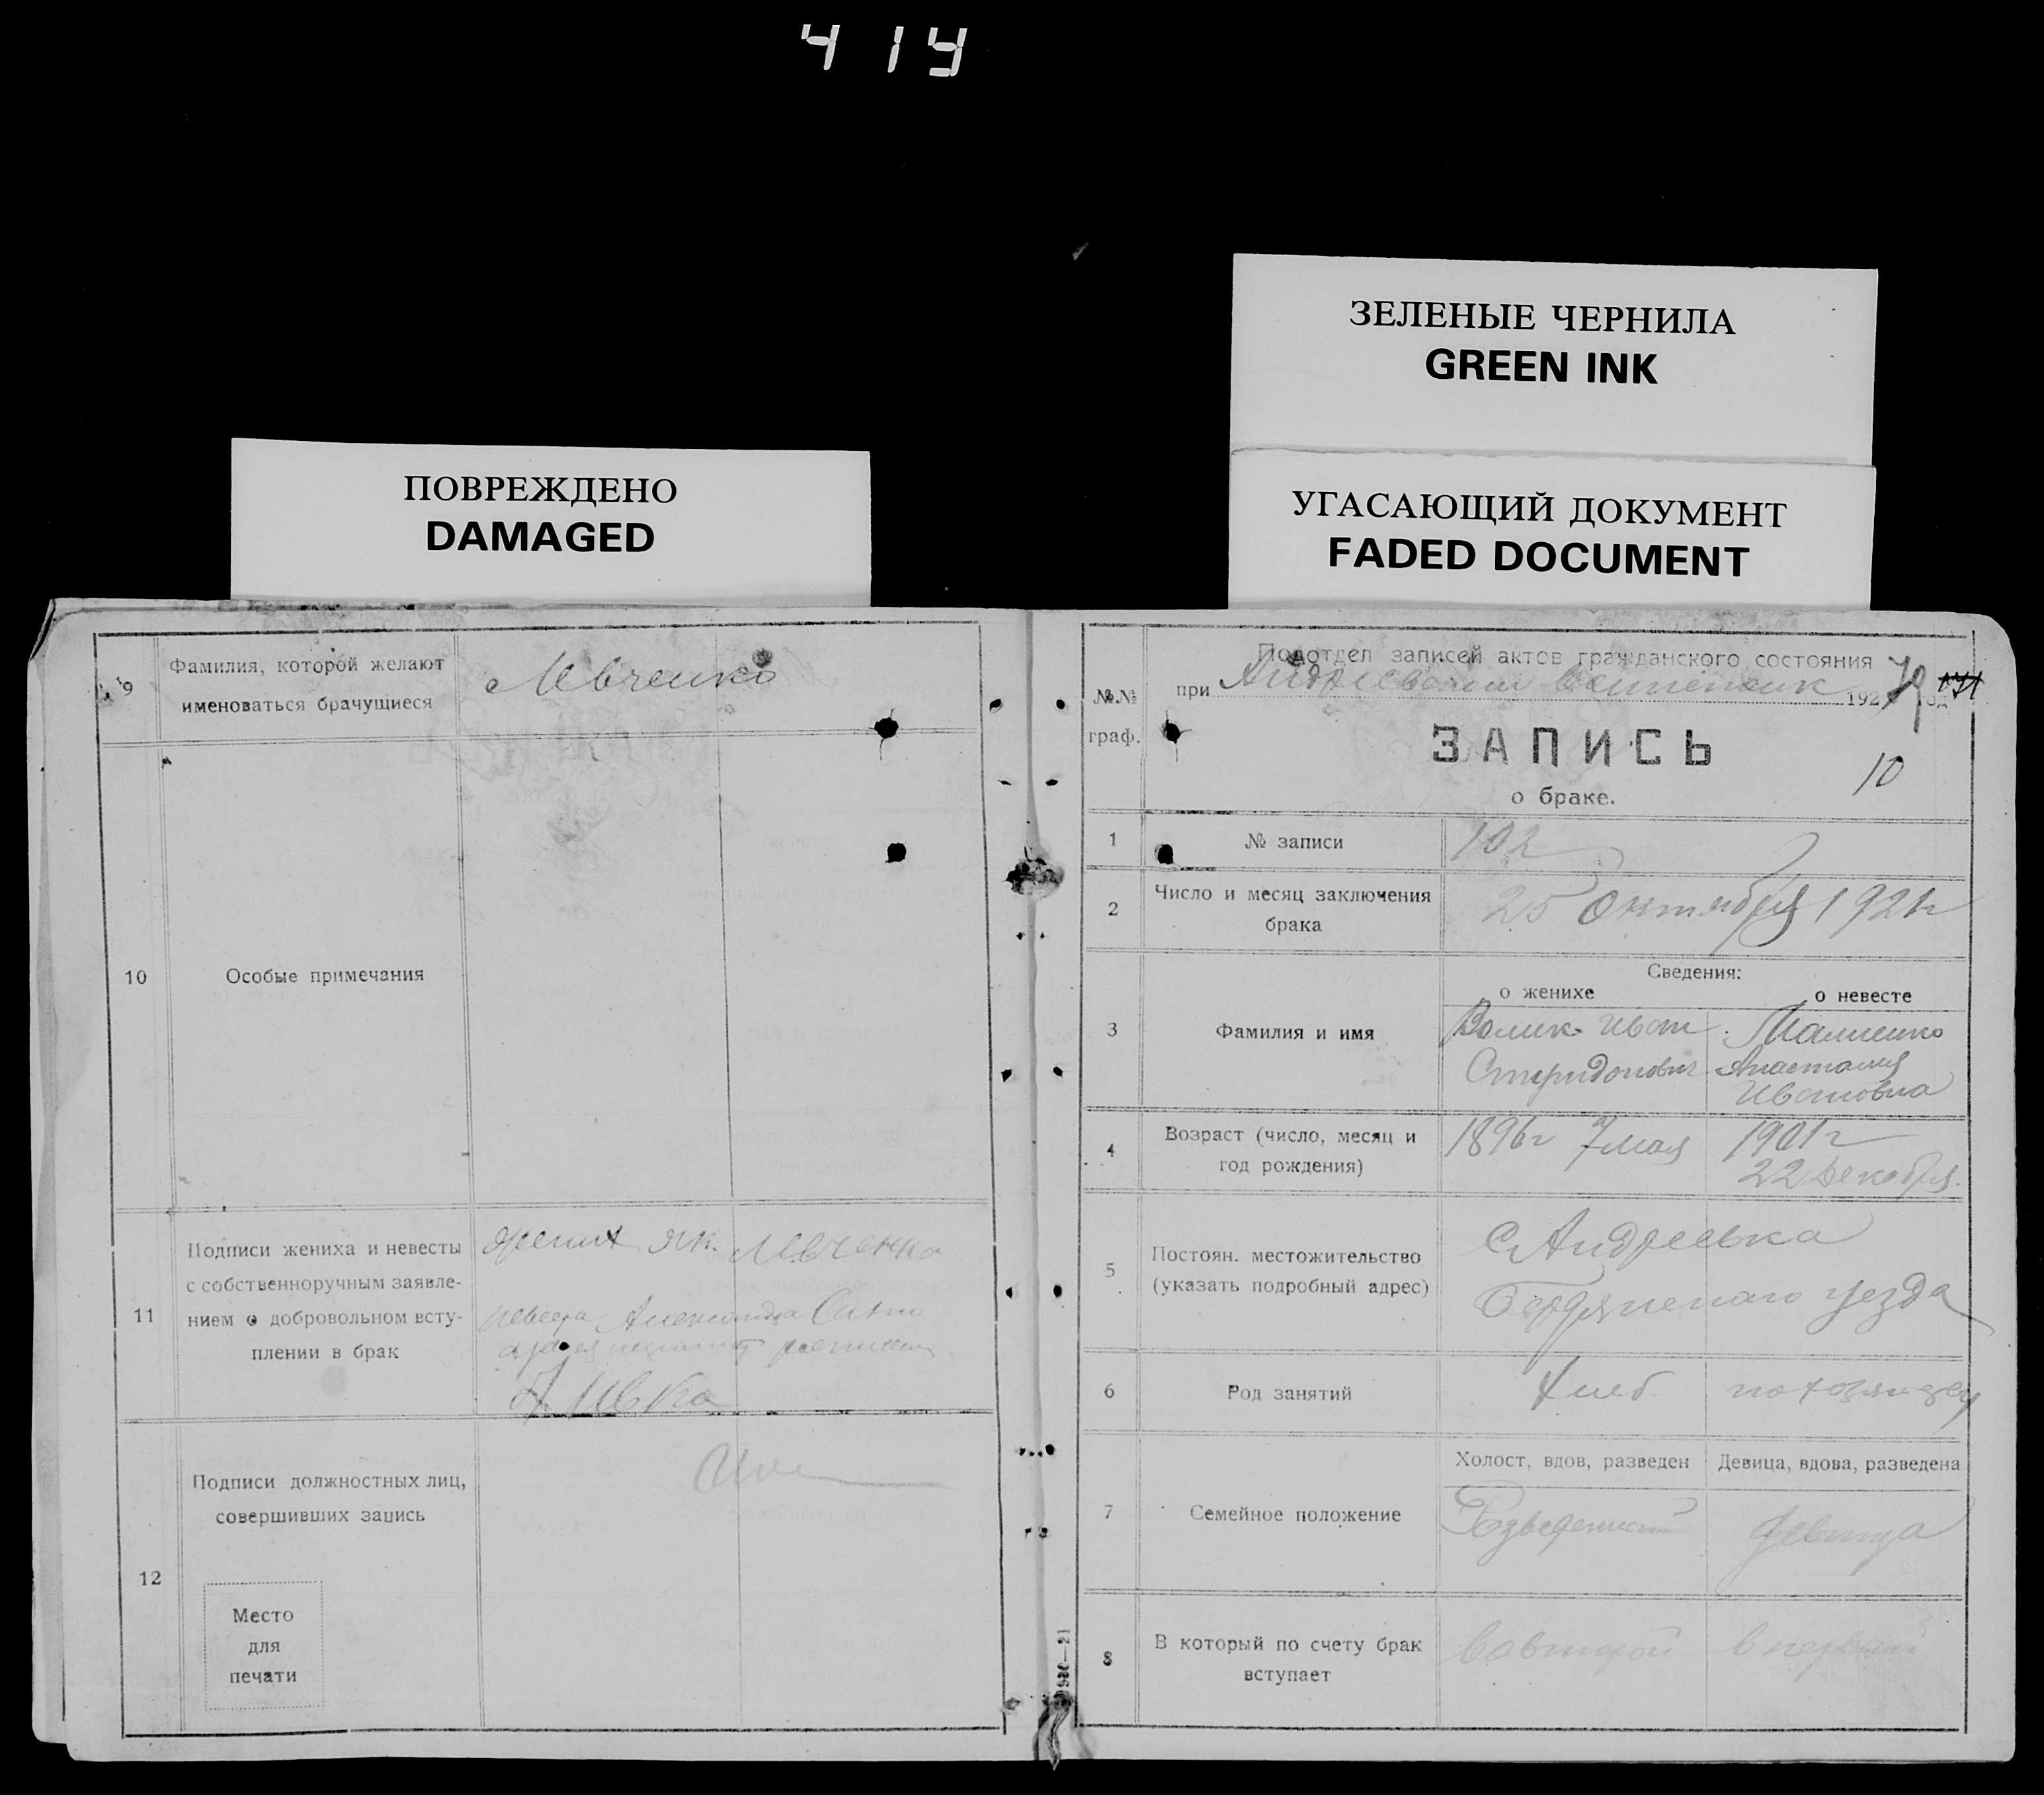 414
ЗЕЛЕНЫЕ ЧЕРНИЛА
GREEN INK
ПОВРЕЖДЕНО
DAMAGED
УГАСАЮЩИЙ ДОКУМЕНТ
FADED DOCUMENT
9
Фамилия, которой желают
именоваться брачущиеся
Левченко
10
Особые примечания
11
Подписи жениха и невесты
с собственноручным заявле-
нием о добровольном всту-
плении в брак
жених Як. Левченко
невеста Александра
12
Подписи должностных лиц,
совершивших запись
Место
для
печати
№№
граф.
Подотдел записей актов гражданского состояния
при Андреевском 192 год
ЗАПИСЬ
10
о браке.
1
№ записи
102
2
Число и месяц заключения
брака
25 Октября 1921 г
Сведения:
о женихе
о невесте
3
Фамилия и имя
Волик Иван
Спиридонович
Анастасия
Ивановна
4
Возраст (число, месяц и
год рождения)
1896 г 7 мая
1901 г
22 Декабря.
5
Постоян. местожительство
(указать подробный адрес)
С Андреевка
Бердянского уезда
6
Род занятий
Хлеб
7
Семейное положение
Холост, вдов, разведен
Девица, вдова, разведена
Девица
8
В который по счету брак
вступает
Во второй
В первый